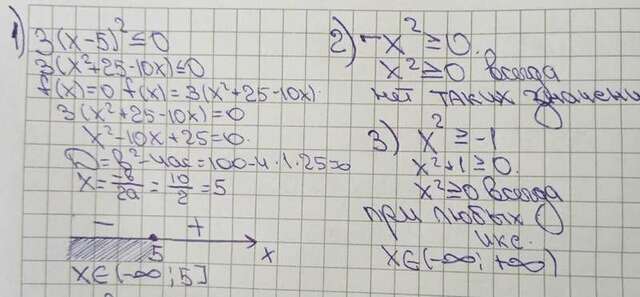 1) 3(x-5)² ≤ 0
3(x²+25-10x) ≤ 0
f(x)=0 f(x)=3(x²+25-10x).
3(x²+25-10x)=0
x²-10x+25=0.
D=b²-4ac=100-4·1·25=0
x=-b/2a=10/2=5
- +
5 x
x∈(-∞;5]
2) -x² ≥ 0.
x² ≥ 0 всегда
нет таких значени
3) x² ≥ -1
x²+1 ≥ 0.
x² ≥ 0 всегда
при любых
икс.
x∈(-∞;+∞)